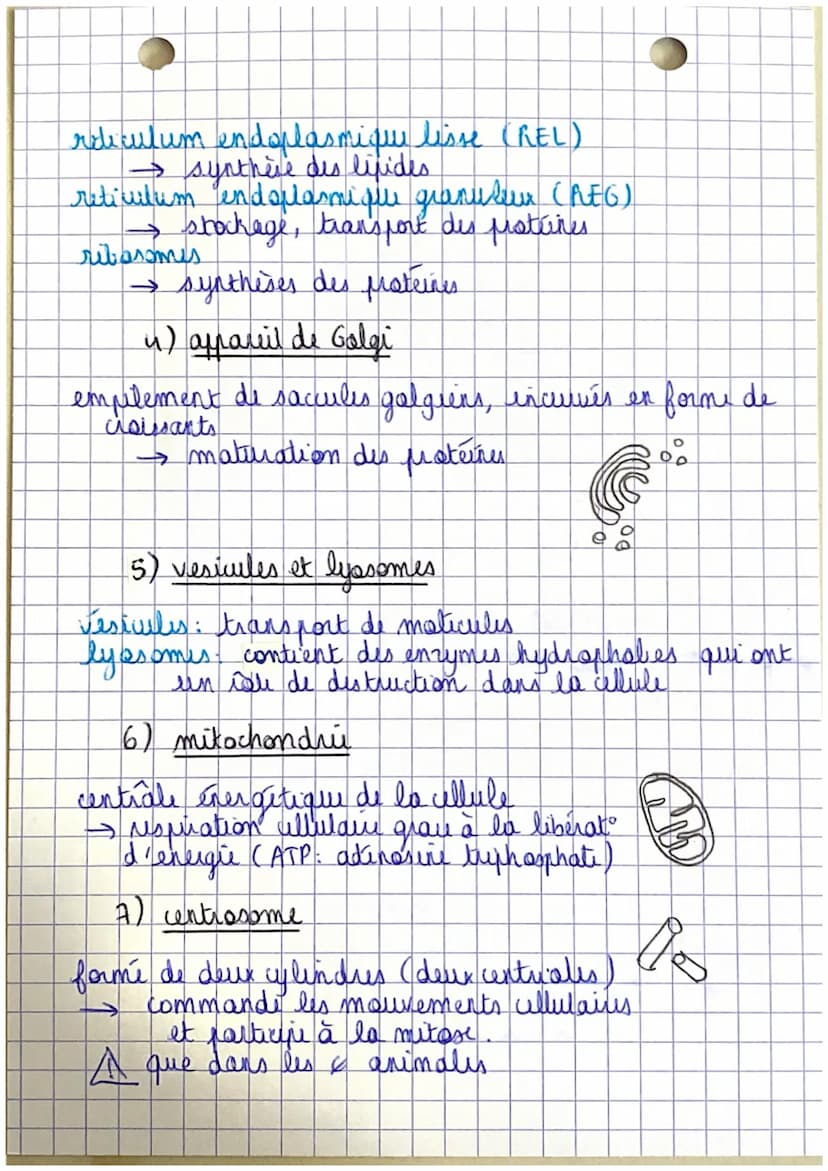 réticulum endoplasmique lisse (REL)
→ synthèse des lipides
réticulum endoplasmique granuleux (REG)
→ stockage, transport des protéines
ribosomes
→ synthèses des protéines
4) appareil de Golgi
empilement de saccules golgiens, incurvés en forme de
croissants
→ maturation des protéines
5) vesicules et lysosomes
vésicules : transport de molécules
lysosomes : contient des enzymes hydrophobes qui ont
un rôle de destruction dans la cellule
6) mitochondrie
centrâle énergétique de la cellule
→ respiration cellulaire grace à la libérat°
d'énergie (ATP : adénosine triphosphate)
7) centrosome
formé de deux cylindres (deux centrioles)
→ commande les mouvements cellulaires
et participe à la mitose.
⚠ que dans les animales